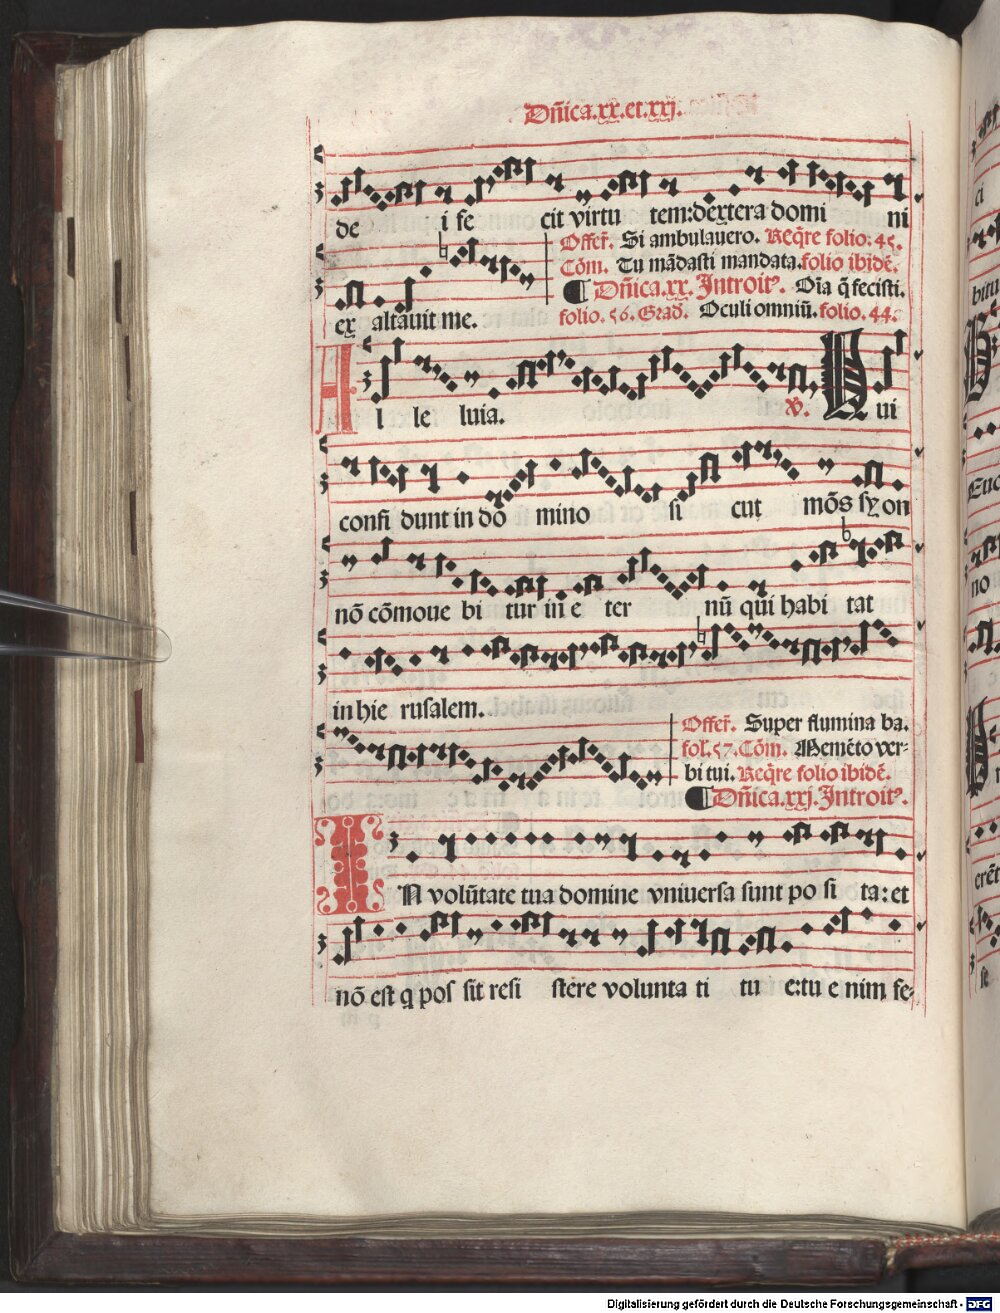 Dñica.xx.et.xxj.
de i fe cit virtu tem:dextera domi ni
Offer̃. Si ambulauero. Req̃re folio. 45.
Cõm. Tu mãdasti mandata. folio ibidẽ.
Dñica.xx. Introitꝰ. Oĩa q̃ fecisti.
ex altauit me.
folio. 56. Grad̃. Oculi omniũ. folio. 44.
Al le luia. ℣. Qui
confi dunt in dõ mino si cut mõs syon
nõ cõmoue bi tur in e ter nũ qui habi tat
in hie rusalem.
Offer̃. Super flumina ba.
fol. 57. Cõm. Memẽto ver-
bi tui. Req̃re folio ibidẽ.
Dñica.xxj. Introitꝰ.
IN volũtate tua domine vniuersa sunt po si ta: et
nõ est q pos sit resi stere volunta ti tu e: tu e nim fe-
ci
bitu
Euo
no
spe
erẽt
se
Digitalisierung gefördert durch die Deutsche Forschungsgemeinschaft - DFG